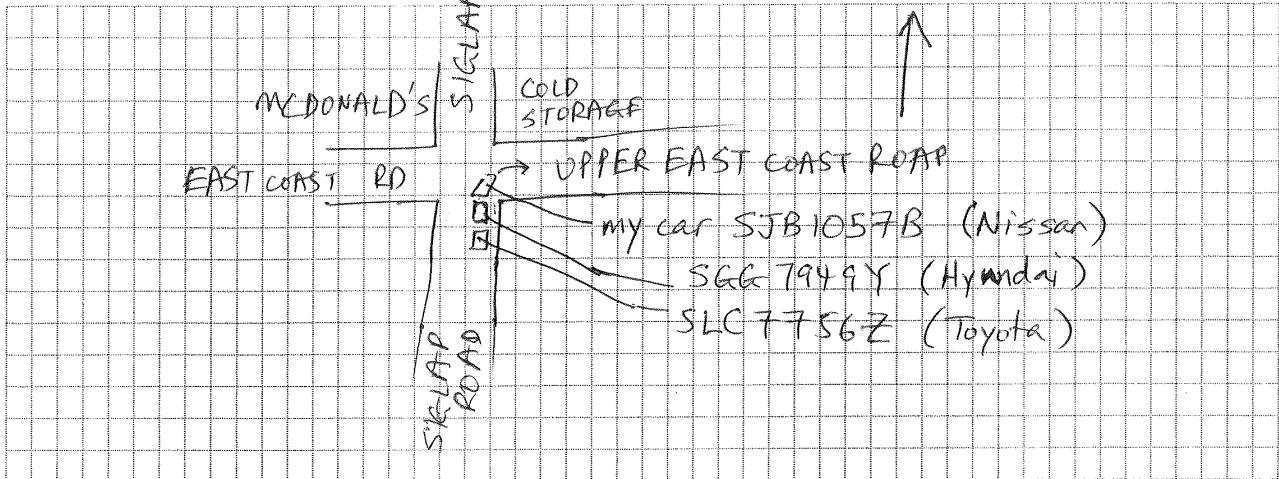 SIGLAP
MCDONALD'S
COLD
STORAGE
EAST COAST RD
UPPER EAST COAST ROAD
my car SJB1057B (Nissan)
SGG 7949Y (Hyundai)
SLC 7756Z (Toyota)
SIGLAP
ROAD